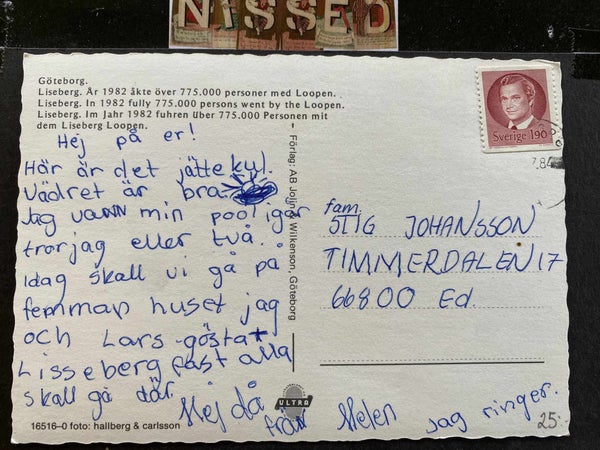 NISSED
Göteborg.
Liseberg. År 1982 åkte över 775.000 personer med Loopen.
Liseberg. In 1982 fully 775.000 persons went by the Loopen.
Liseberg. Im Jahr 1982 fuhren über 775.000 Personen mit
dem Liseberg Loopen.
Hej på er!
Här är det jätte kul.
Vädret är bra
Jag vann min pool igår
tror jag eller två.
Idag skall vi gå på
femman huset jag
och Lars-gösta
Lisseberg fast alla
skall gå där.
Hej då
från Helen jag ringer.
16516-0 foto: hallberg & carlsson
ULTRA
Förlag: AB Joljn Wilkenson, Göteborg
Sverige 190
84
fam.
STIG JOHANSSON
TIMMERDALEN 17
66800 Ed.
25:-